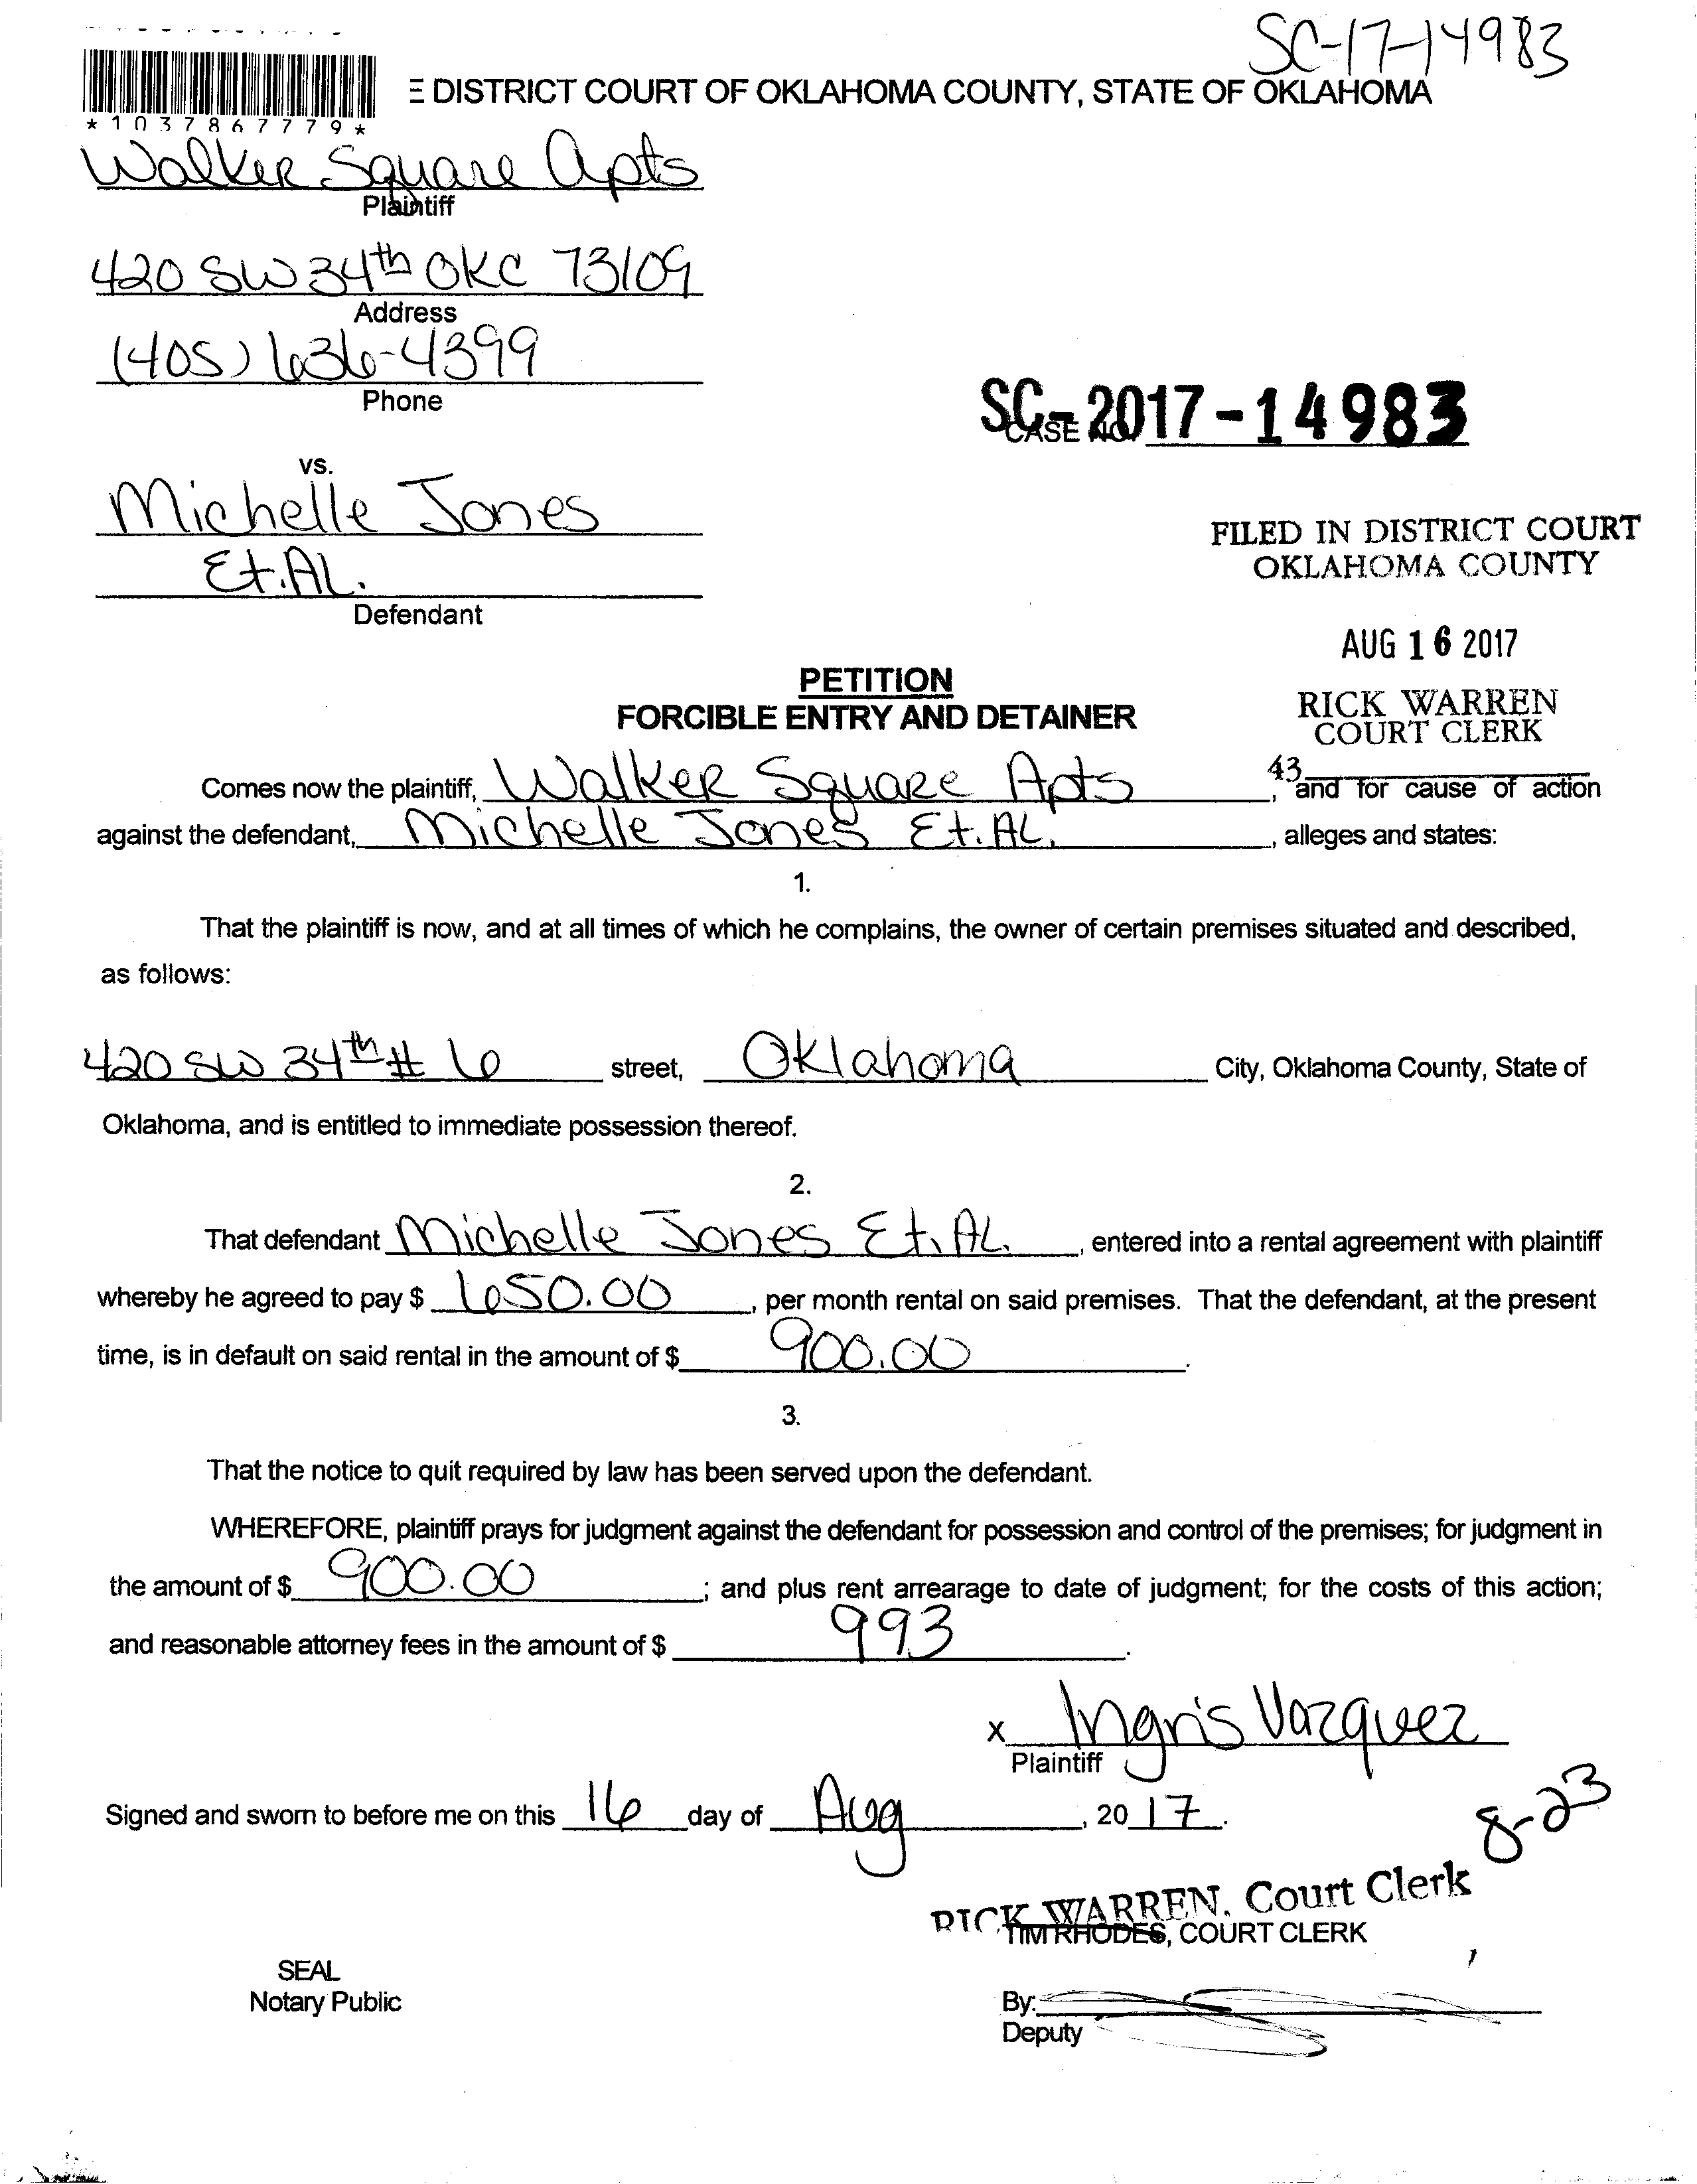 SC-17-14983
E DISTRICT COURT OF OKLAHOMA COUNTY, STATE OF OKLAHOMA
*1037867779*
Walker Square Apts
Plaintiff
420 SW 34th OKC 73109
Address
(405) 636-4399
Phone
SC-2017-14983
CASE NO.
vs.
Michelle Jones
Et.AL.
Defendant
FILED IN DISTRICT COURT
OKLAHOMA COUNTY
AUG 16 2017
RICK WARREN
COURT CLERK
43
PETITION
FORCIBLE ENTRY AND DETAINER
Comes now the plaintiff, Walker Square Apts, and for cause of action
against the defendant, Michelle Jones Et.AL., alleges and states:
1.
That the plaintiff is now, and at all times of which he complains, the owner of certain premises situated and described,
as follows:
420 SW 34th # 6 street, Oklahoma City, Oklahoma County, State of
Oklahoma, and is entitled to immediate possession thereof.
2.
That defendant Michelle Jones Et.AL., entered into a rental agreement with plaintiff
whereby he agreed to pay $ 650.00, per month rental on said premises. That the defendant, at the present
time, is in default on said rental in the amount of $ 900.00.
3.
That the notice to quit required by law has been served upon the defendant.
WHEREFORE, plaintiff prays for judgment against the defendant for possession and control of the premises; for judgment in
the amount of $ 900.00; and plus rent arrearage to date of judgment; for the costs of this action;
and reasonable attorney fees in the amount of $ 993.
x Ingris Vazquez
Plaintiff
Signed and sworn to before me on this 16 day of Aug, 2017.
8-23
RICK WARREN, Court Clerk
TIM RHODES, COURT CLERK
SEAL
Notary Public
By:
Deputy